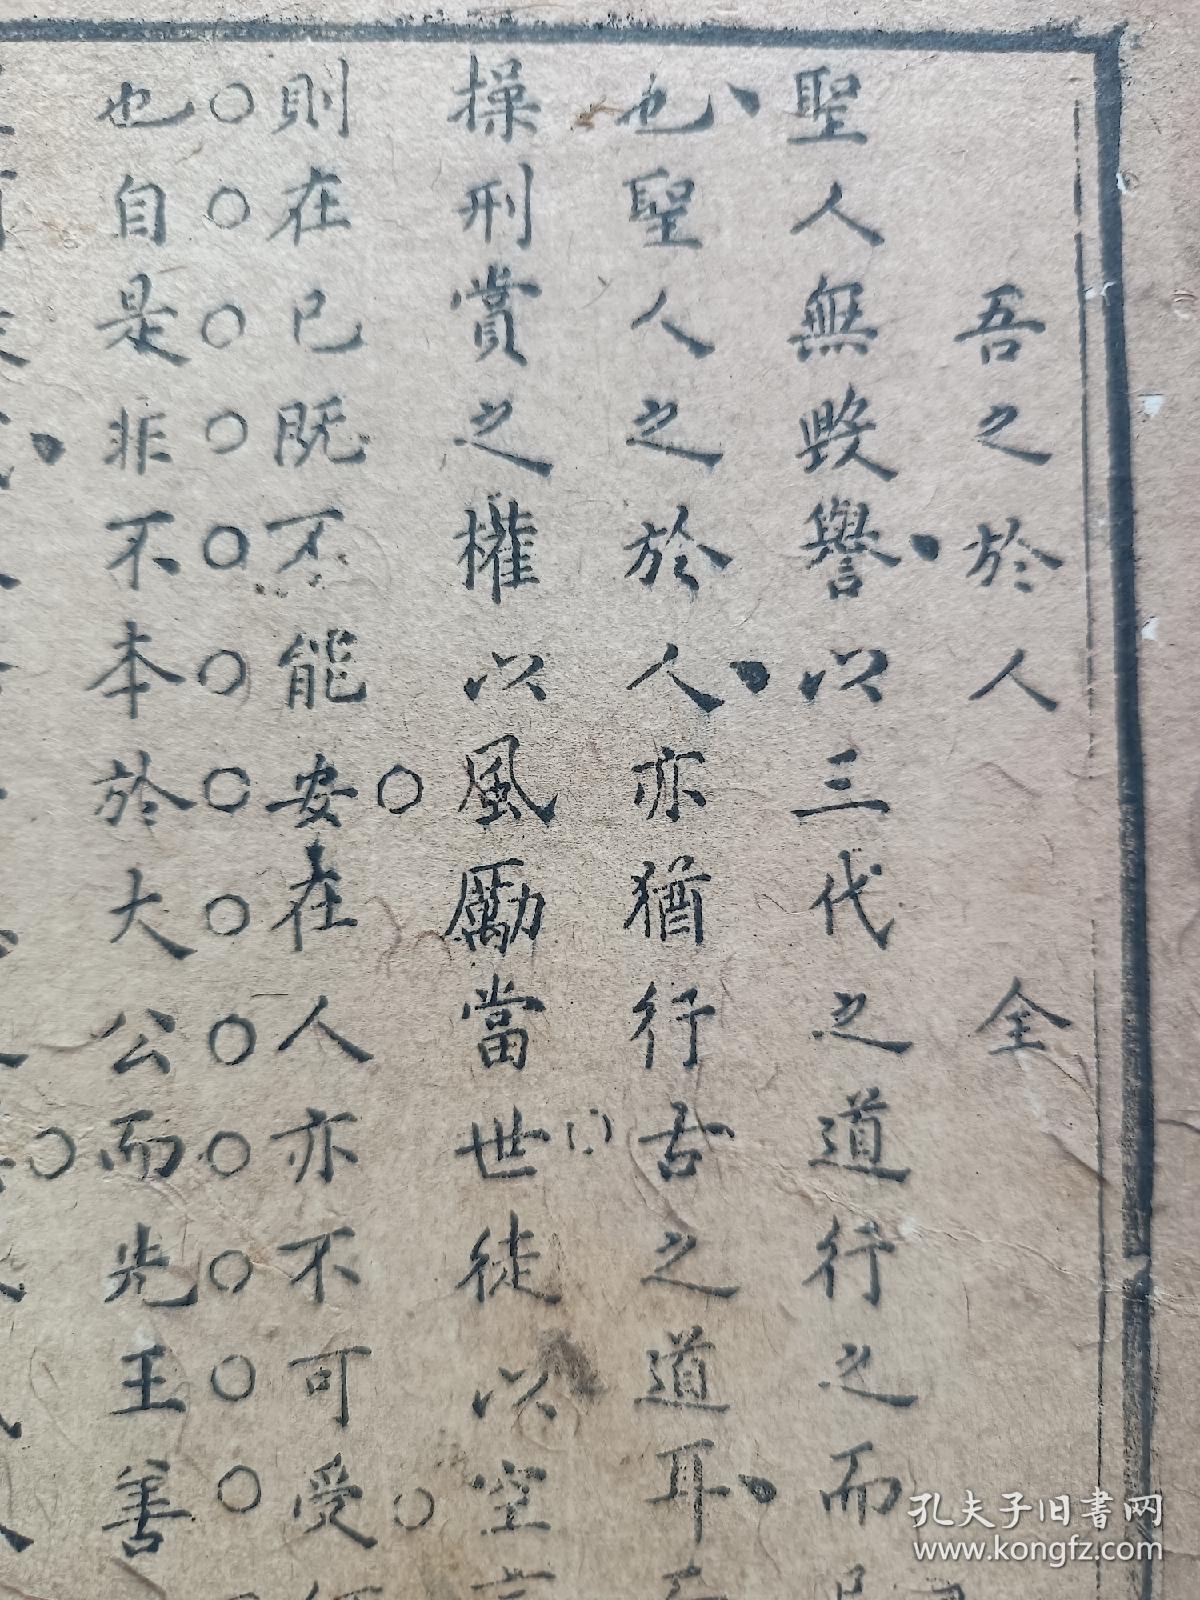 吾之於人　全
聖人無毀譽以三代之道行之而
也聖人之於人亦猶行古之道耳
操刑賞之權以風勵當世徒以空
則在已既不能安在人亦不可受
也自是非不本於大公而先王善
孔夫子旧書网
www.kongfz.com